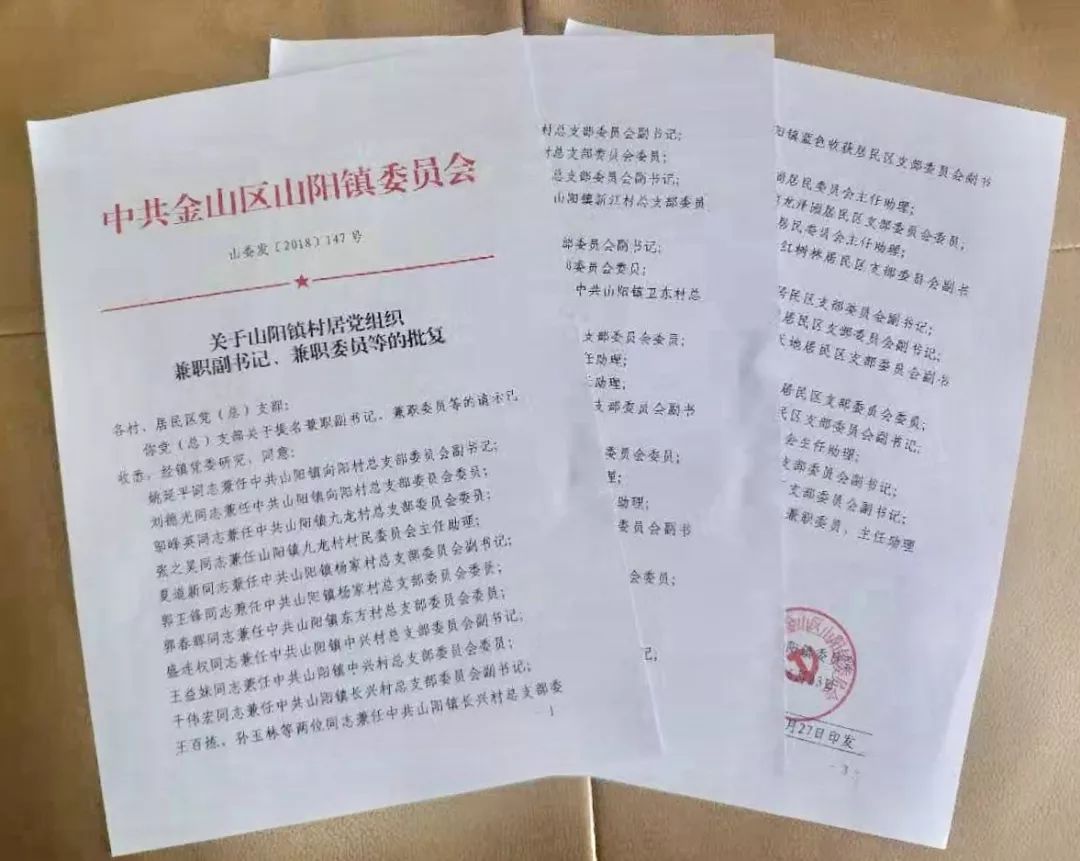 中共金山区山阳镇委员会
山委发〔2018〕147号
关于山阳镇村居党组织
兼职副书记、兼职委员等的批复
各村、居民区党（总）支部：
你党（总）支部关于提名兼职副书记、兼职委员等的请示已
收悉，经镇党委研究，同意：
姚延平同志兼任中共山阳镇向阳村总支部委员会副书记；
刘德光同志兼任中共山阳镇向阳村总支部委员会委员；
邬峰英同志兼任中共山阳镇九龙村总支部委员会委员；
张之昊同志兼任山阳镇九龙村村民委员会主任助理；
夏道新同志兼任中共山阳镇杨家村总支部委员会副书记；
郭王锋同志兼任中共山阳镇杨家村总支部委员会委员；
郭春辉同志兼任中共山阳镇东方村总支部委员会委员；
盛连权同志兼任中共山阳镇中兴村总支部委员会副书记；
王益妹同志兼任中共山阳镇中兴村总支部委员会委员；
干伟宏同志兼任中共山阳镇长兴村总支部委员会副书记；
王百拣、孙玉林等两位同志兼任中共山阳镇长兴村总支部委
- 1
村总支部委员会副书记；
总支部委员会委员；
总支部委员会副书记；
山阳镇新江村总支部委员
部委员会副书记；
委员会委员；
中共山阳镇卫东村总
支部委员会委员；
任助理；
助理；
支部委员会副书
委员会委员；
助理；
委员会副书
会委员；
记；
阳镇蓝色收获居民区支部委员会副书
居民委员会主任助理；
龙泽园居民区支部委员会委员；
居民委员会主任助理；
红树林居民区支部委员会副书
居民区支部委员会副书记；
居民区支部委员会副书记；
天地居民区支部委员会副书
居民区支部委员会委员；
民区支部委员会副书记；
会主任助理；
支部委员会副书记；
支部委员会副书记；
兼职委员，主任助理
金山区山阳镇委员会
阳镇委
3日
月27日印发
- 3